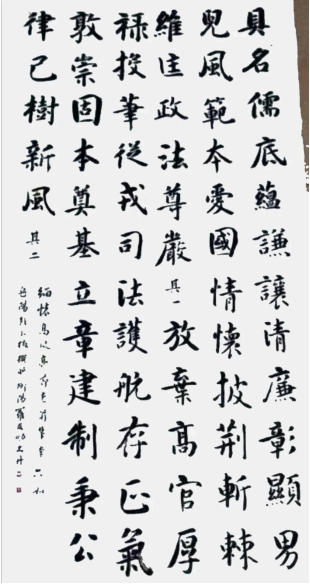 具名儒底蘊謙讓清廉彰顯男
兒風範本愛國情懷披荆斬棘
維匡政法尊嚴其一放棄高官厚
禄投筆從戎司法護航存正氣
敦崇固本奠基立章建制秉公
律己樹新風其二
緬懷